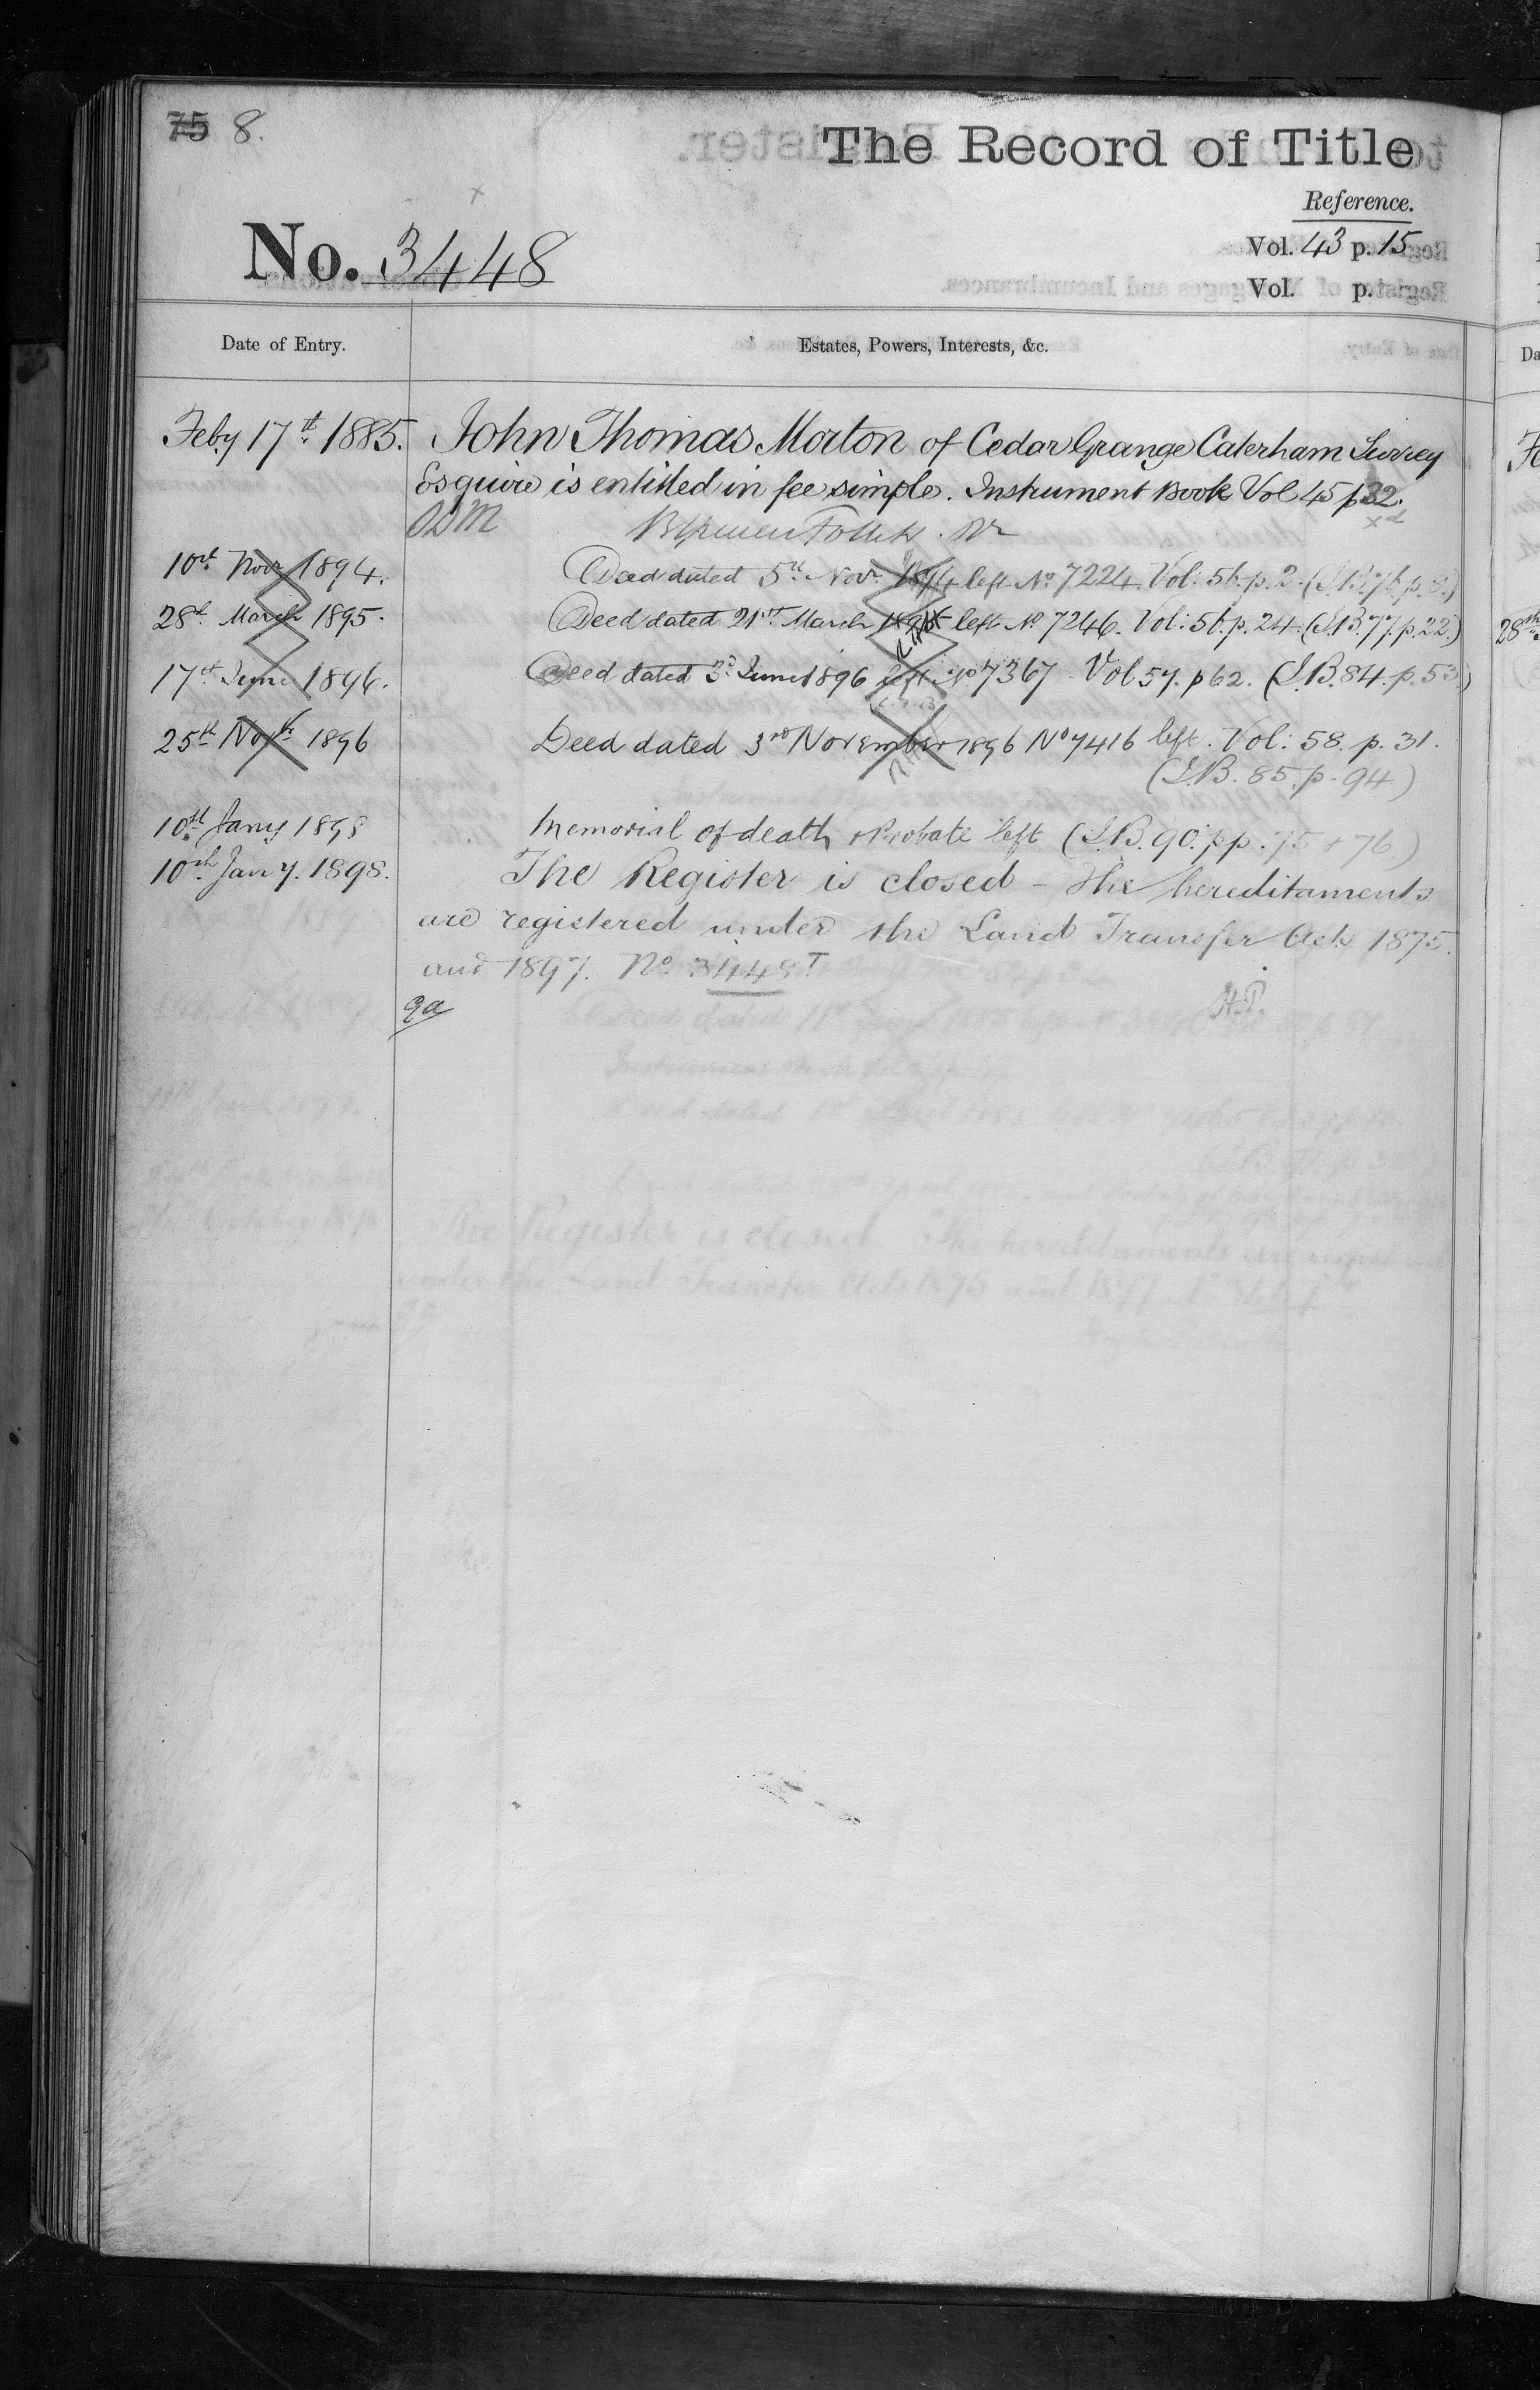 75 8.
The Record of Title
Reference.
Vol. 43 p. 15
No. 3448
Vol. p.
Date of Entry. Estates, Powers, Interests, &c.
Feby 17th 1885. John Thomas Morton of Cedar Grange Caterham Surrey
Esquire is entitled in fee simple. Instrument Book Vol 45 p 32.
10th Novr 1894. Deed dated 5th Novr 1894 left No 7224. Vol: 56. p. 2. (I.B. 76. p. 8.)
28th March 1895. Deed dated 21st March 1895 left No 7246. Vol: 56. p. 24. (I.B. 77. p. 22.)
17th June 1896. Deed dated 3rd June 1896 left No 7367 Vol 57. p 62. (I.B. 84. p. 53.)
25th Novr 1896 Deed dated 3rd November 1896 No 7416 left. Vol: 58. p. 31.
(I.B. 85. p. 94)
10th Jany 1898 Memorial of death & Probate left (I.B. 90. pp. 75 + 76.)
10th Jany. 1898. The Register is closed - The hereditaments
are registered under the Land Transfer Acts 1875
and 1897. No. 3448T
H.P.
28th